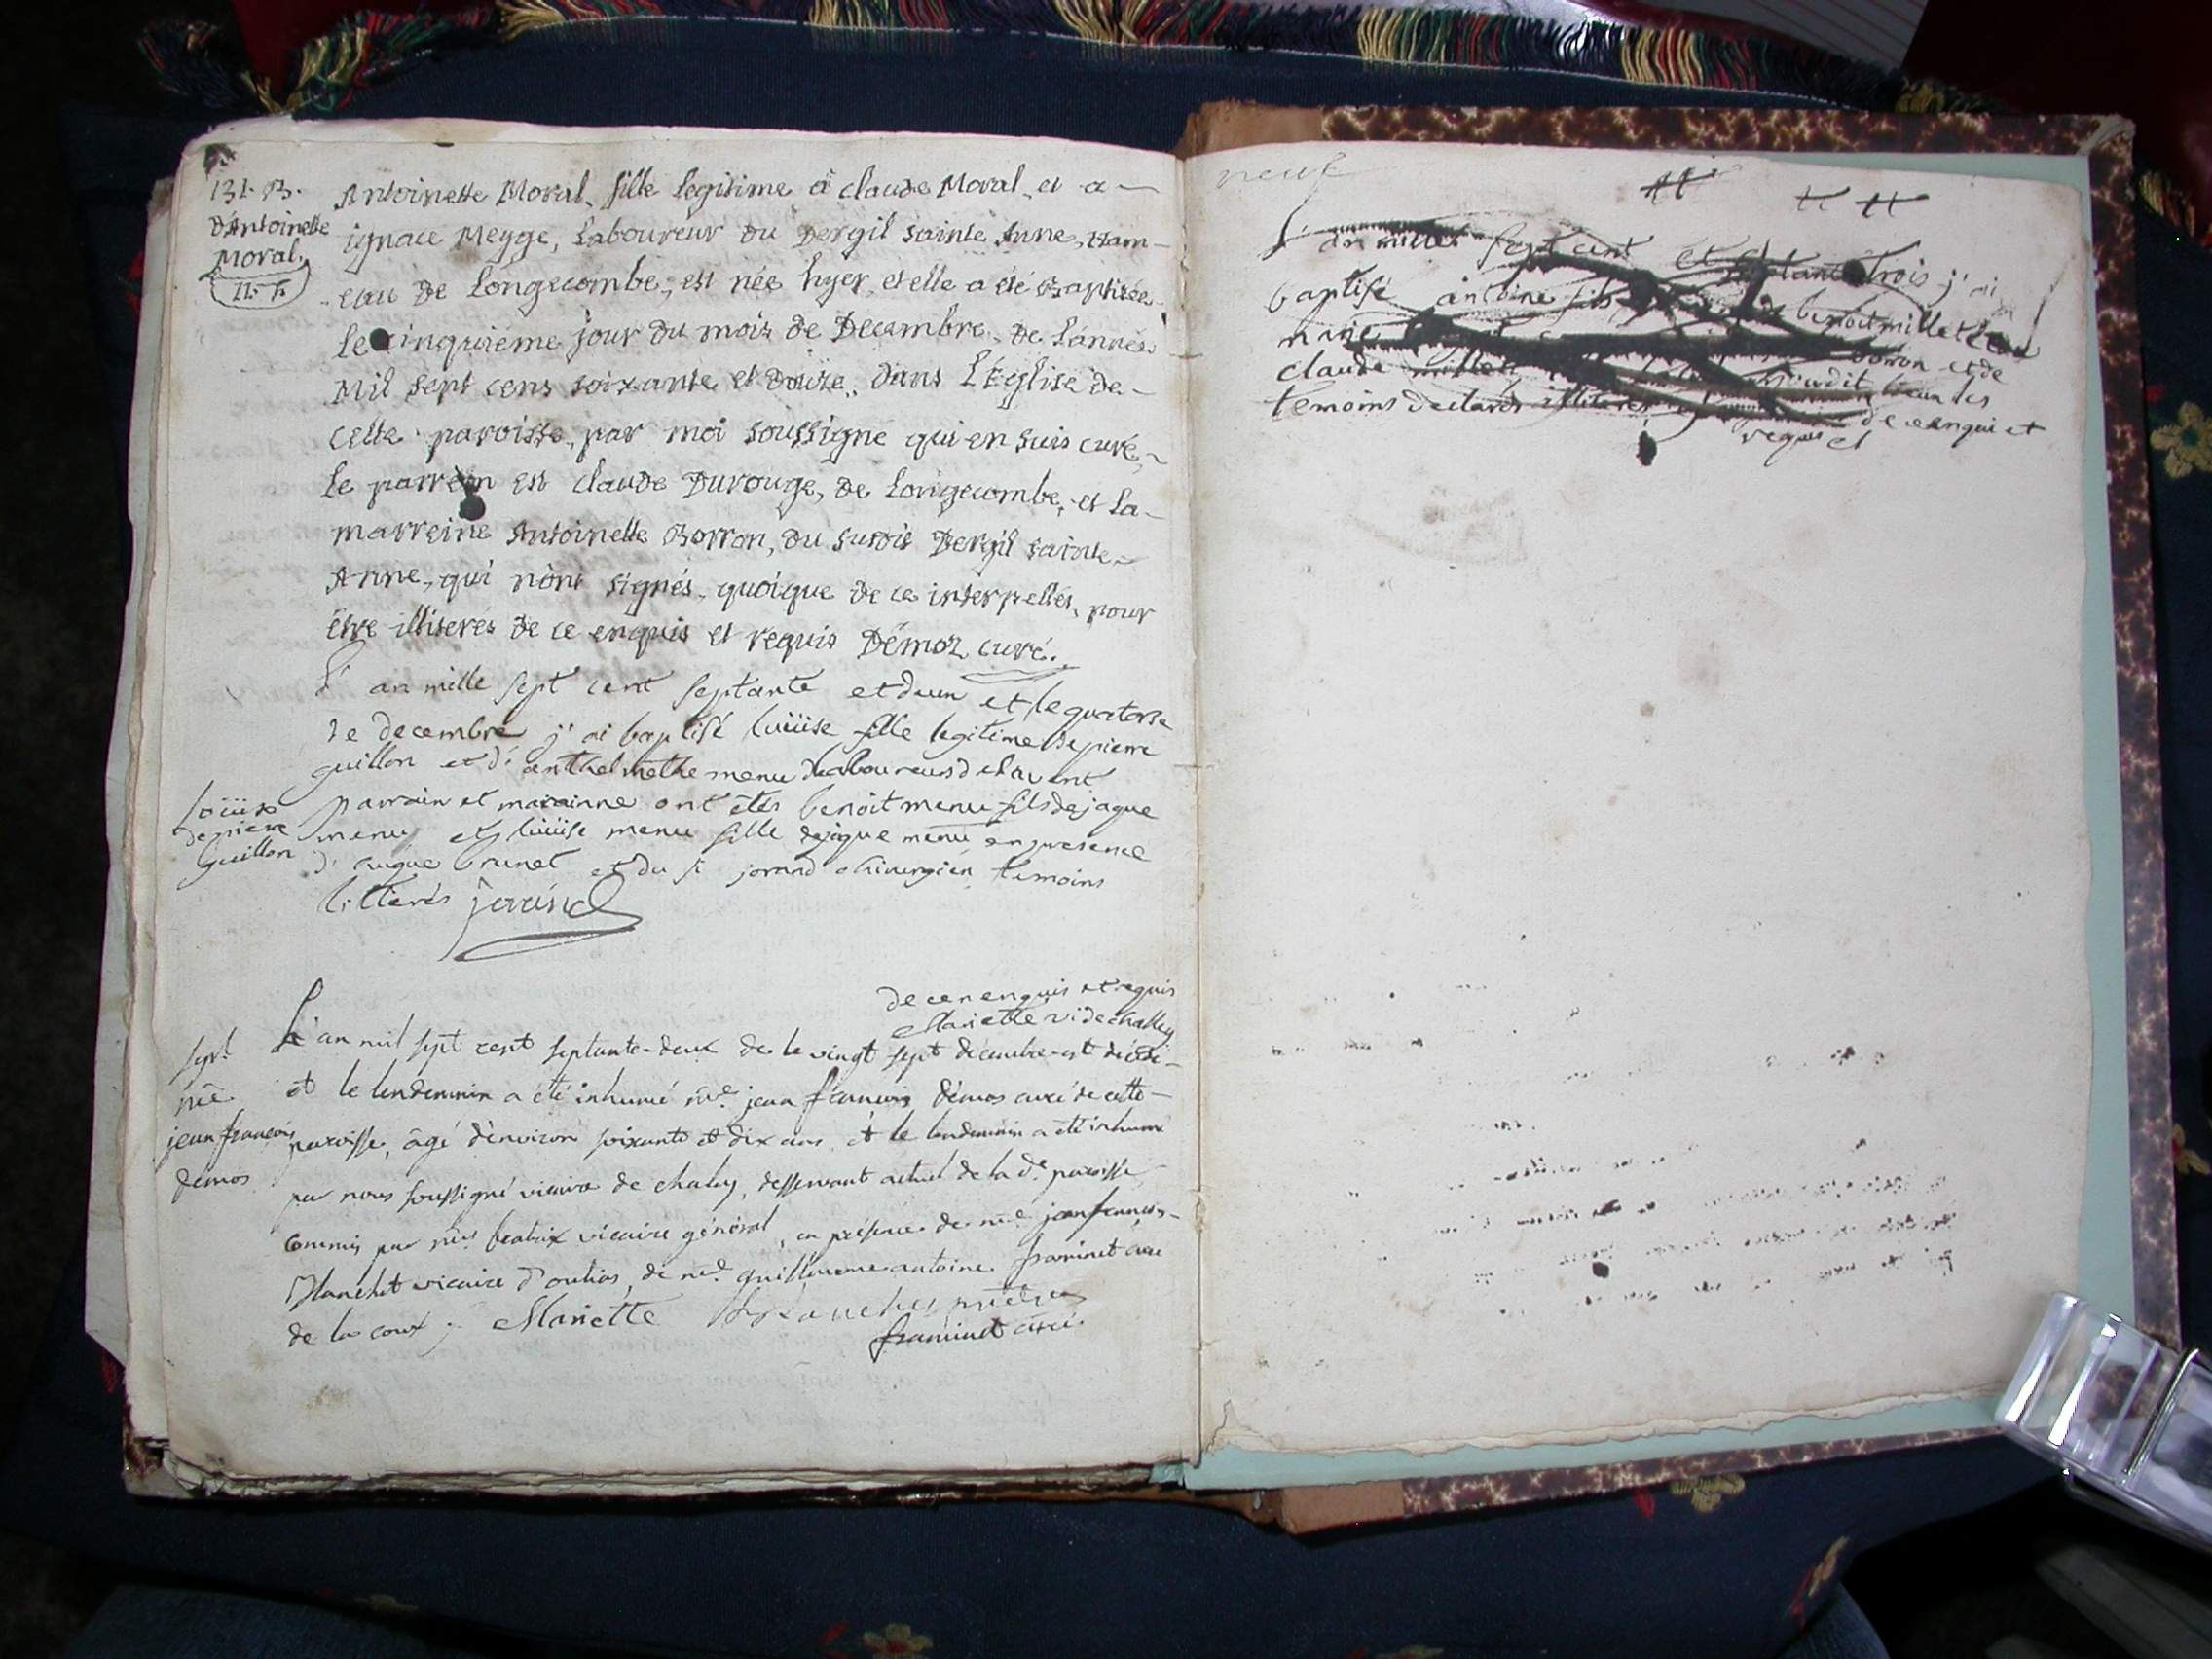 131. B.
d'Antoinette
Moral.
11. F.
Antoinette Moral, fille legitime à claude Moral, et a-
ignace Megge, Laboureur du Dergil sainte Anne, Ham-
eau de Longecombe, est née hyer, et elle a été Baptisée
le cinquième jour du mois de Decembre, de L'année
Mil sept cens soixante et douze, dans L'Église de-
cette paroisse, par moi soussigné qui en suis curé,
Le parrein est claude Durouge, de Longecombe, et La-
marreine Antoinette Borron, du susdit Dergil sainte-
Anne, qui n'ont signés, quoique de ce interpellés, pour
être illiterés de ce enquis et requis Démoz curé.
L'an mille sept cent septante et deux et le quatorse
de decembre j'ai baptisé luüise fille legitime de pierre
guillon et d'anthelmethe menu laboureurs de lavant
parrain et marainne ont étés benoit menu fils de jaque
menu et luüise menu fille de jaque menu en presence
d' augue brunet et du sr jorand chirurgien temoins
litterés jorand
loüise
de pierre
Guillon
de ce enquis et requis
Mariette vic de challey
L'an mil sept cent septante-deux et le vingt sept décembre est décédé-
et le lendemain a été inhumé mre jean françois démos curé de cette-
paroisse, âgé d'environ soixante et dix ans, et le lendemain a été inhumé
par nous soussigné vicaire de chaley, desservant actuel de la de paroisse
commis par mre beatrix vicaire général, en présence de mre jean françois-
Blanchet vicaire d'outias, de mre guillaume antoine framinet curé
de la coux; Mariette Blanchet prêtre
framinet curé.
sept
mre
jean françois
demos
neuf
L'an mille sept cent et septante trois j'ai
baptisé antoine fils de benoit millet et de
marie
claude millet
temoins declarés illiterés de ce enquis et
requis et